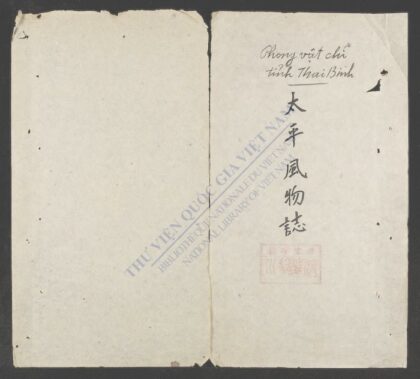 Phong vật chí
tỉnh Thái Bình
太平風物誌
THƯ VIỆN QUỐC GIA VIỆT NAM
BIBLIOTHÈQUE NATIONALE DU VIETNAM
NATIONAL LIBRARY OF VIETNAM